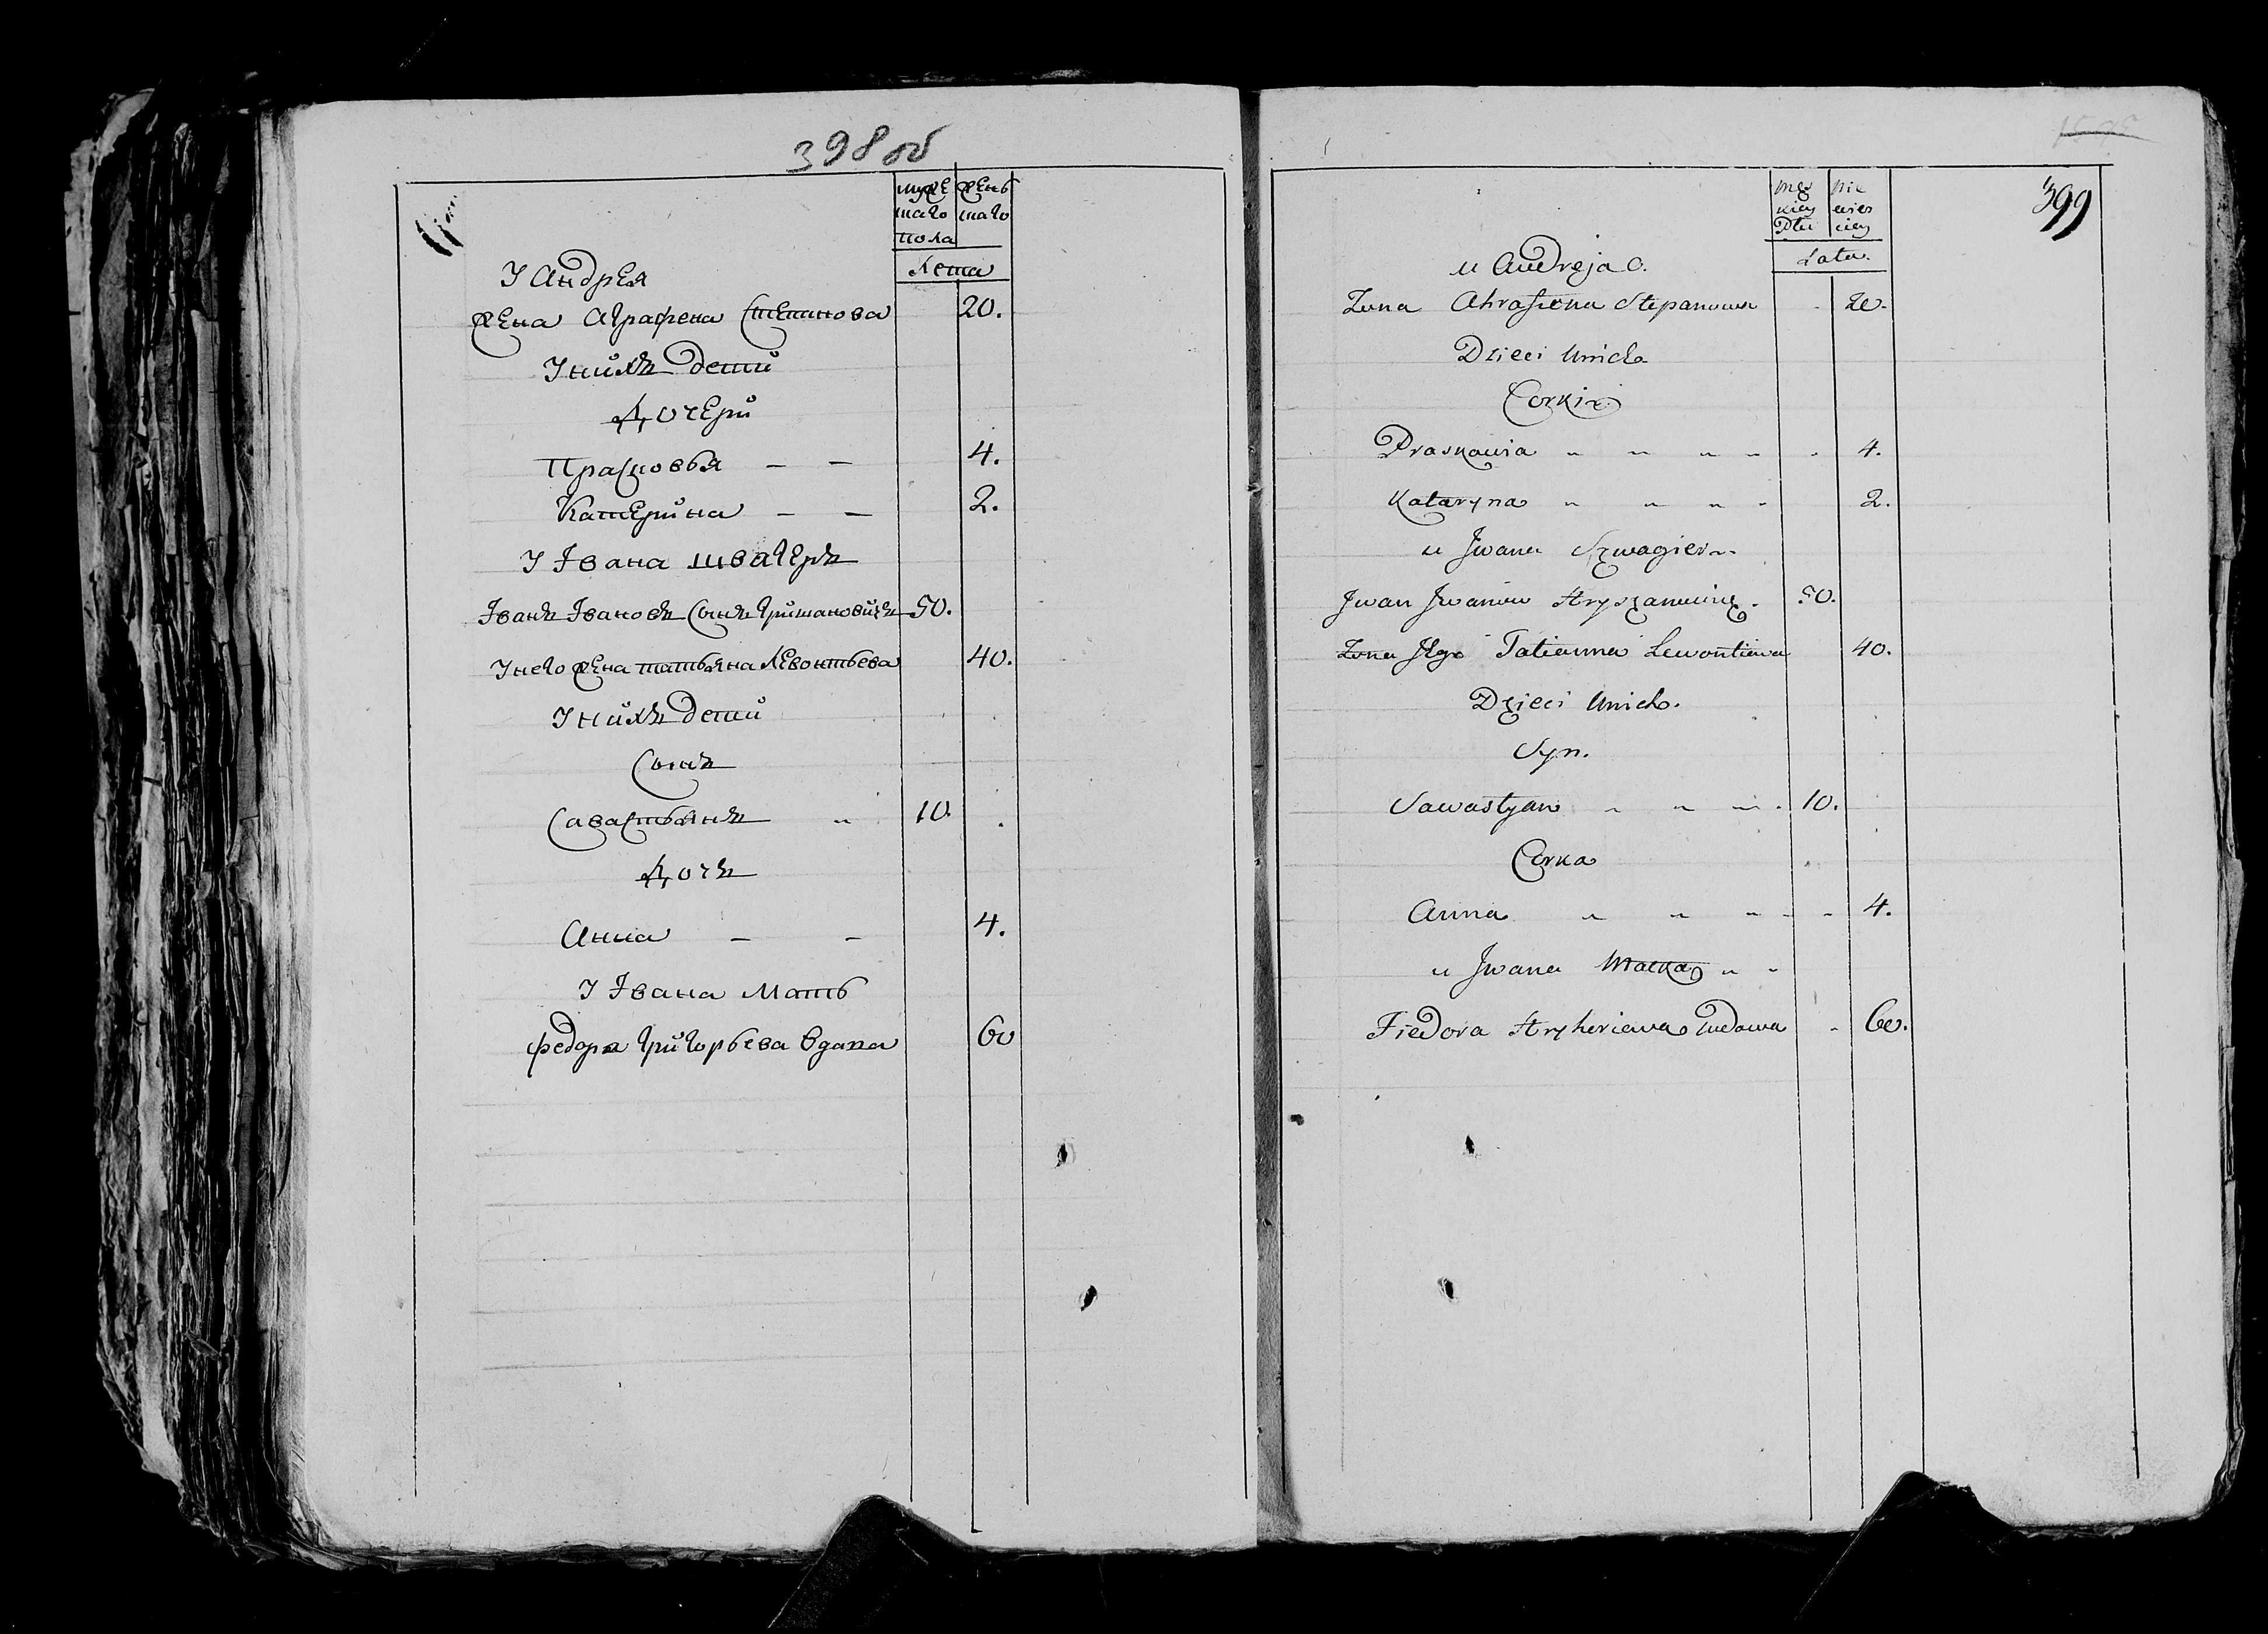 398 об
муже жень
скаго скаго
пола
Лета
У Андрея
жена Аграфена Степанова 20.
У нихъ дети
Дочери
Прасковья — — 4.
Катерина — — 2.
У Ивана швагеръ
Иванъ Ивановъ сынъ Гришановичъ 50.
У него жена Татьяна Левонтьева 40.
У нихъ дети
Сынъ
Савастьянъ 10.
Дочь
Анна — — 4.
У Ивана мать
Федора Григорьева вдова 60
399
Męz
kiey
Płci
Lata.
u Andreja
Żona Ahrafiena Stepanowa 20.
Dzieci Unich
Corki
Praskowia 4.
Kataryna 2.
u Jwana Szwagier
Jwan Jwanow Hryszanowicz. 50.
Żona Jego Tatianna Lewontiewa 40.
Dzieci Unich.
Syn.
Sawastyan 10.
Corka
Anna 4.
u Jwana Matka
Fiedora Hryhoriewa Wdowa 60.